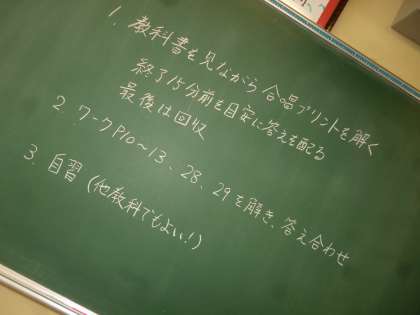 1. 教科書を見ながら合唱プリントを解く
終了15分前を目安に答えを配る
最後は回収
2. ワークP10〜13、28、29を解き、答え合わせ
3. 自習(他教科でもよい!)